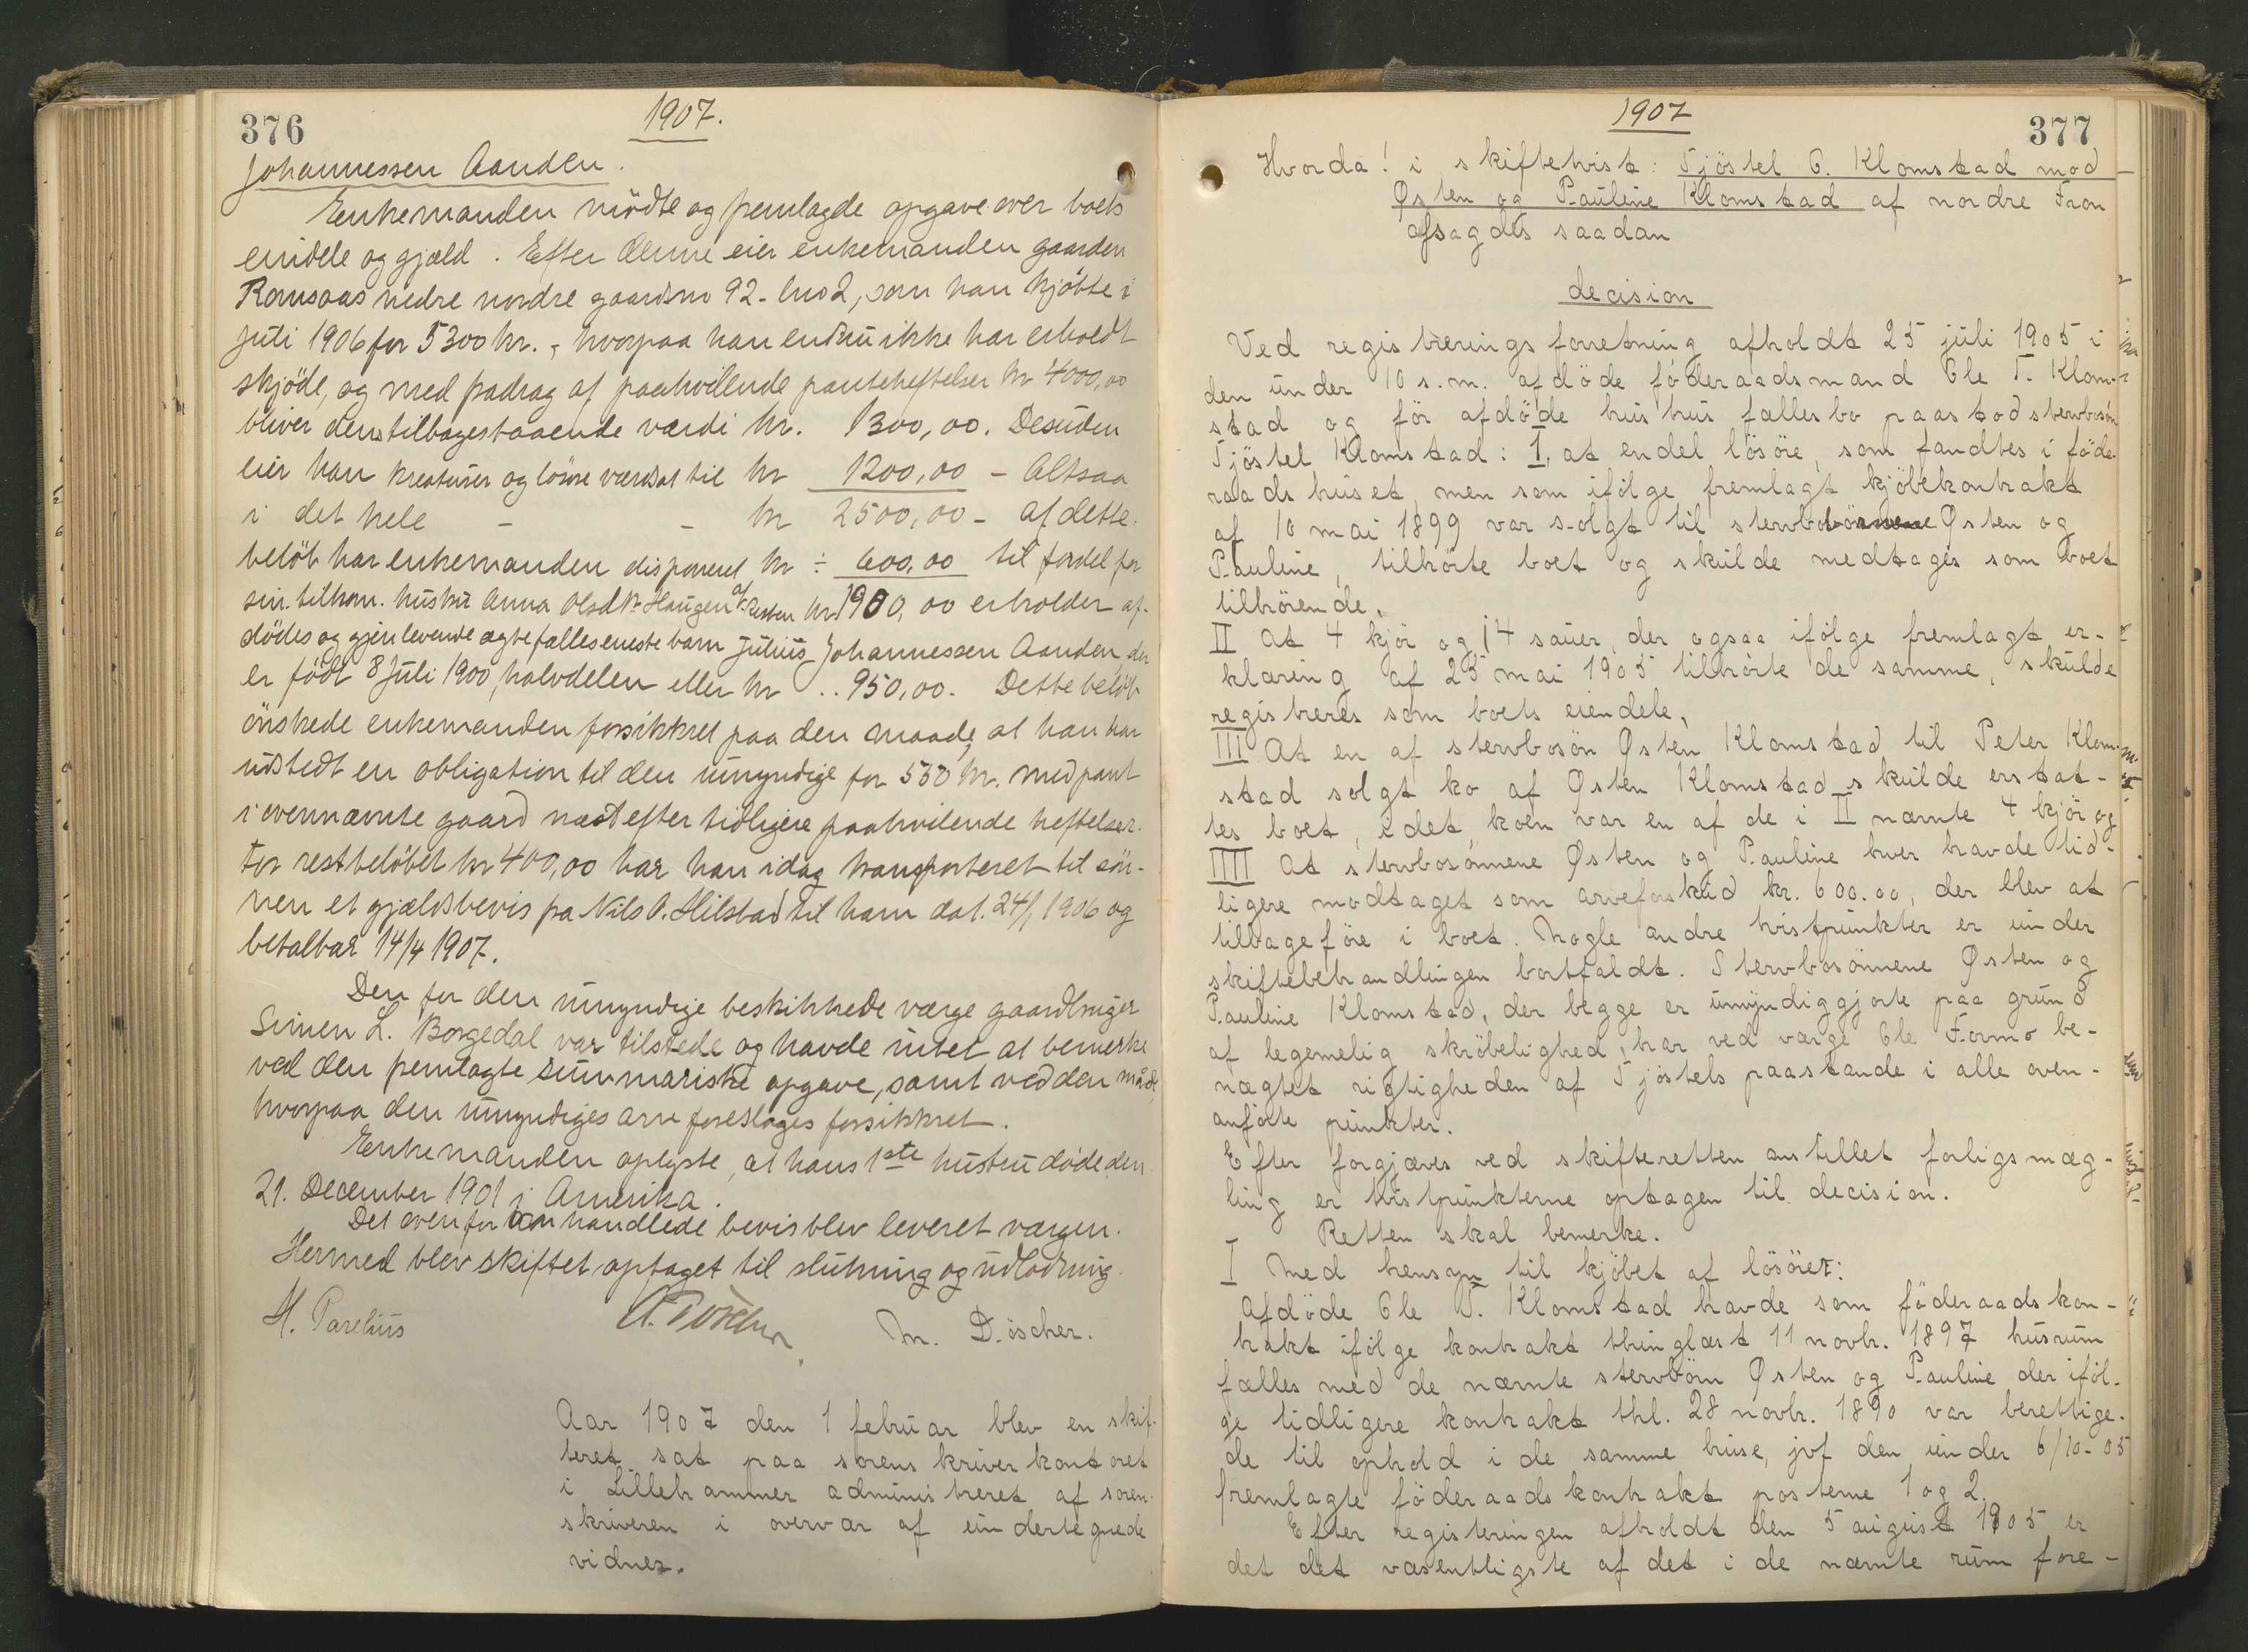 376
1907.
Johannessen Aanden.
Enkemanden mödte og fremlagde opgave over boets
eiendele og gjæld. Efter denne eier enkemanden gaarden
Romsaas nedre nordre gaardsno 92 - bno 2, som han kjöbte i
Juli 1906 for 5300 kr. - hvorpaa han endnu ikke har erholdt
skjöde, og med fradrag af paahvilende panteheftelser kr 4000,00
bliver dens tilbagestaaende værdi kr. 1300,00. Desuden
eier han kreaturer og lösöre værdsat til kr 1200,00 - Altsaa
i det hele - - kr 2500,00 - af dette
belöb har enkemanden disponeret kr ÷ 600,00 til fordel for
sin tilkom. hustru Anna Olsdtr Haugen af Resten kr 1900,00 erholder af-
dödes og gjenlevende ægtefælles eneste barn Julius Johannessen Aanden der
er födt 8 Juli 1900, halvdelen eller kr .. 950,00. Dette belöb
önskede enkemanden forsikkret paa den maade, at han har
udstedt en obligation til den umyndige for 550 kr. med pant
i ovennævnte gaard næst efter tidligere paahvilende heftelser.
For restbelöbet kr 400,00 har han idag transporteret til sön-
nen et gjældsbevis fra Nils A. Hilstad til ham dat. 24/1 1906 og
betalbar 14/4 1907.
Den for den umyndige beskikkede værge gaardbruger
Simen L. Borgedal var tilstede og havde intet at bemerke
ved den fremlagte summariske opgave, samt ved den måde,
hvorpaa den umyndiges arv foreslages forsikkret.
Enkemanden oplyste, at hans 1ste hustru döde den
21. December 1901 i Amerika.
Det ovenfor omhandlede bevis blev leveret værgen.
Hermed blev skiftet optaget til slutning og udlodning.
H. Parelius
M. D. öscher.
Aar 1907 den 1 februar blev en skif-
teret sat paa sorenskriverkontoret
i Lillehammer administreret af soren-
skriveren i overvær af undertegnede
vidner.
1907
377
Hvorda! i skiftetvist: Tjöstel O. Klomstad mod
Østen og Pauline Klomstad af nordre Fron
afsagdes saadan
decision
Ved registreringsforretning afholdt 25 juli 1905 i
den under 10 s.m. afdöde föderaadsmand Ole T. Klom-
stad og för afdöde hustrus fællesbo paastod stervbosön
Tjöstel Klomstad: I, at endel lösöre, som fandtes i föde-
raadshuset, men som ifölge fremlagt kjöbekontrakt
af 10 mai 1899 var solgt til stervbobörnene Østen og
Pauline, tilhörte boet og skulde medtages som boet
tilhörende,
II At 4 kjör og 14 sauer, der ogsaa ifölge fremlagt er-
klæring af 25 mai 1905 tilhörte de samme, skulde
registreres som boets eiendele,
III At en af stervbosön Østen Klomstad til Peter Klom-
stad solgt ko af Østen Klomstad skulde erstat-
tes boet, idet koen var en af de i II nævnte 4 kjör og
IIII At stervbosönnene Østen og Pauline hver havde tid-
ligere modtaget som arveforskud kr. 600.00, der blev at
tilbageföre i boet. Nogle andre tvistpunkter er under
skiftebehandlingen bortfaldt. Stervbosönnene Østen og
Pauline Klomstad, der begge er umyndiggjorte paa grund
af legemelig skröbelighed, har ved værge Ole Formo be-
nægtet rigtigheden af Tjöstels paastande i alle oven-
anförte punkter.
Efter forgjæves ved skifteretten anstillet forligsmæg-
ling er tvistpunkterne optagen til decision.
Retten skal bemerke.
I Med hensyn til kjöbet af lösöret:
Afdöde Ole T. Klomstad havde som föderaadskon-
trakt ifölge kontrakt thinglæst 11 novbr. 1897 husrum
fælles med de nævnte stervbörn Østen og Pauline der iföl-
ge tidligere kontrakt thl. 28 novbr. 1890 var berettige-
de til ophold i de samme huse, jvf den under 6/10-05
fremlagte föderaadskontrakt posterne 1 og 2.
Efter registeringen afholdt den 5 august 1905 er
det det væsentligste af det i de nævnte rum fore-